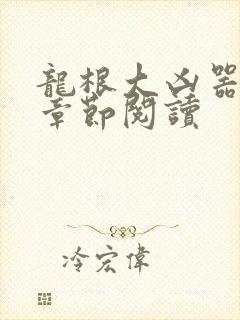 龍根大凶器
章節閱讀
冷宏偉